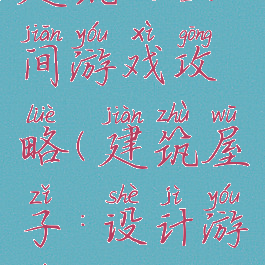 jiān yóu xì gōng
间游戏攻
lüè jiàn zhù wū
略(建筑屋
zǐ shè jì yóu
子:设计游